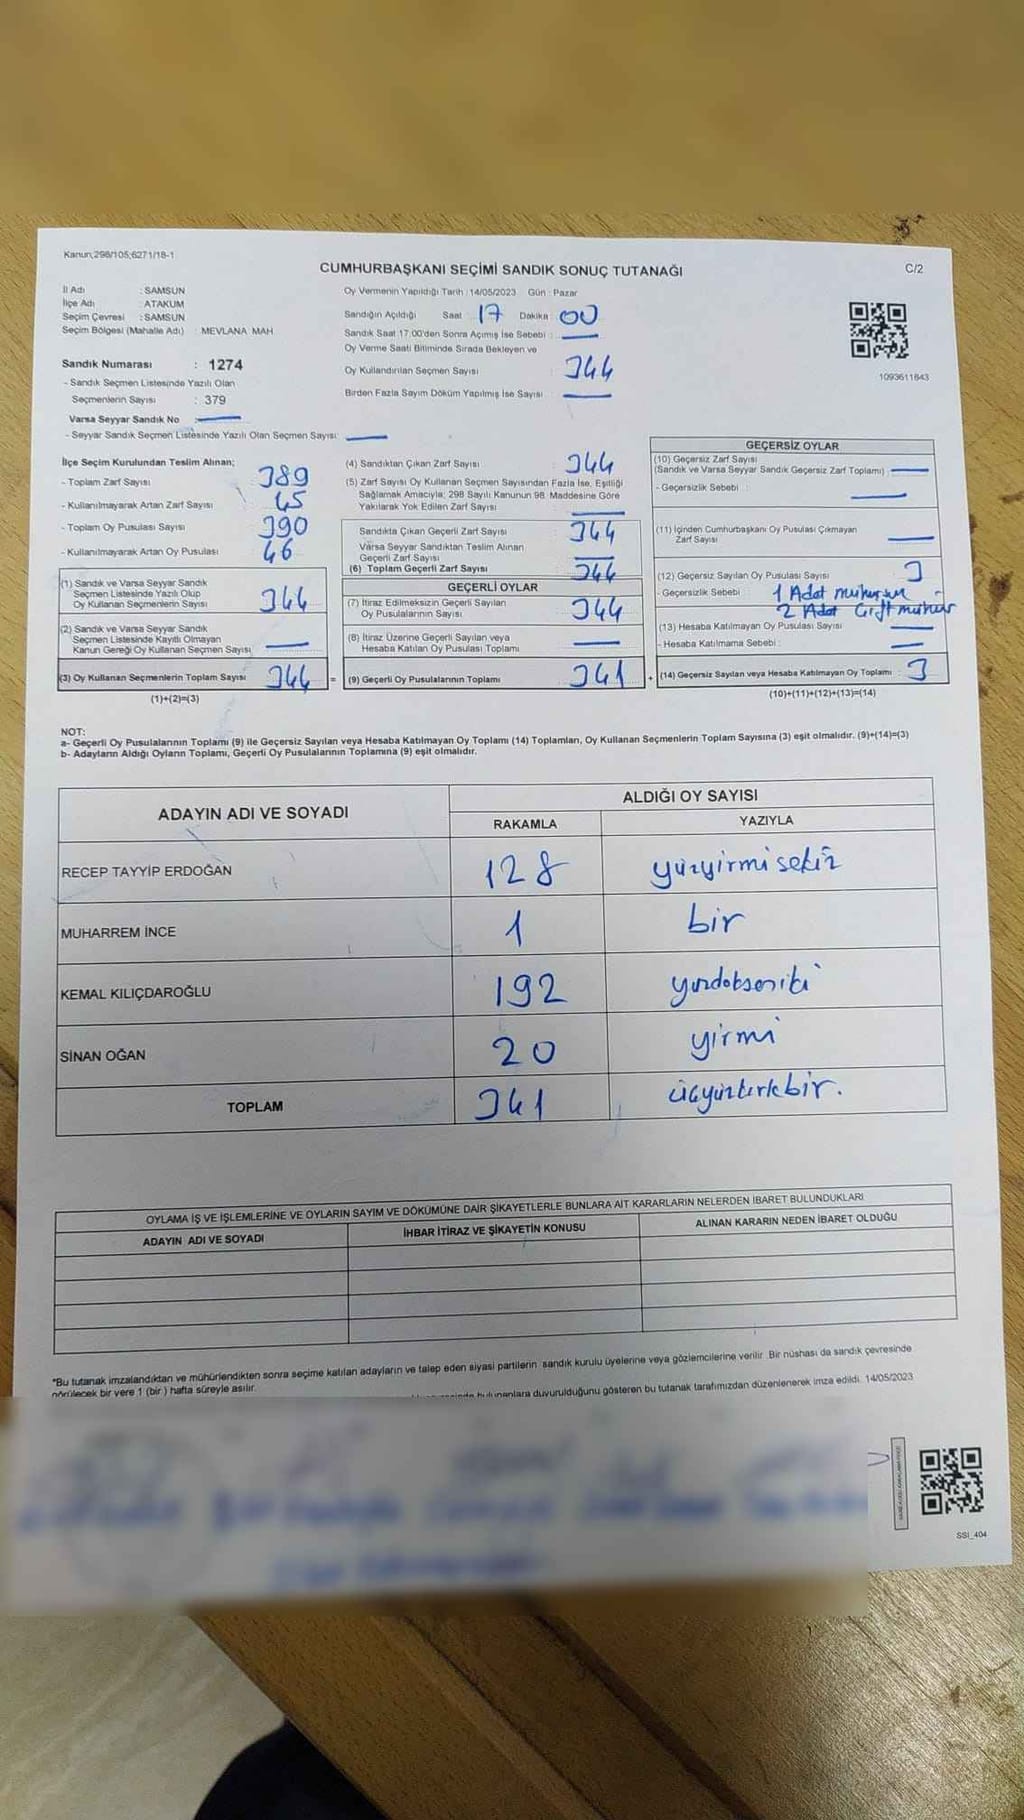 Kanun;298/105;6271/18-1
CUMHURBAŞKANI SEÇİMİ SANDIK SONUÇ TUTANAĞI
C/2
İl Adı : SAMSUN
İlçe Adı : ATAKUM
Seçim Çevresi : SAMSUN
Seçim Bölgesi (Mahalle Adı) : MEVLANA MAH
Sandık Numarası : 1274
- Sandık Seçmen Listesinde Yazılı Olan
Seçmenlerin Sayısı : 379
Varsa Seyyar Sandık No :
- Seyyar Sandık Seçmen Listesinde Yazılı Olan Seçmen Sayısı:
Oy Vermenin Yapıldığı Tarih : 14/05/2023 Gün : Pazar
Sandığın Açıldığı Saat 17 Dakika 00
Sandık Saat 17:00'den Sonra Açımış İse Sebebi :
Oy Verme Saati Bitiminde Sırada Bekleyen ve
Oy Kullandırılan Seçmen Sayısı : 344
Birden Fazla Sayım Döküm Yapılmış İse Sayısı :
1093611643
İlçe Seçim Kurulundan Teslim Alınan;
- Toplam Zarf Sayısı : 389
- Kullanılmayarak Artan Zarf Sayısı : 45
- Toplam Oy Pusulası Sayısı : 390
- Kullanılmayarak Artan Oy Pusulası : 46
(1) Sandık ve Varsa Seyyar Sandık
Seçmen Listesinde Yazılı Olup
Oy Kullanan Seçmenlerin Sayısı : 344
(2) Sandık ve Varsa Seyyar Sandık
Seçmen Listesinde Kayıtlı Olmayan
Kanun Gereği Oy Kullanan Seçmen Sayısı
(3) Oy Kullanan Seçmenlerin Toplam Sayısı : 344 =
(1)+(2)=(3)
(4) Sandıktan Çıkan Zarf Sayısı : 344
(5) Zarf Sayısı Oy Kullanan Seçmen Sayısından Fazla İse, Eşitliği
Sağlamak Amacıyla; 298 Sayılı Kanunun 98. Maddesine Göre
Yakılarak Yok Edilen Zarf Sayısı :
Sandıkta Çıkan Geçerli Zarf Sayısı : 344
Varsa Seyyar Sandıktan Teslim Alınan
Geçerli Zarf Sayısı
(6) Toplam Geçerli Zarf Sayısı : 344
GEÇERLİ OYLAR
(7) İtiraz Edilmeksizin Geçerli Sayılan
Oy Pusulalarının Sayısı : 344
(8) İtiraz Üzerine Geçerli Sayılan veya
Hesaba Katılan Oy Pusulası Toplamı
(9) Geçerli Oy Pusulalarının Toplamı : 341 +
GEÇERSİZ OYLAR
(10) Geçersiz Zarf Sayısı
(Sandık ve Varsa Seyyar Sandık Geçersiz Zarf Toplamı) :
- Geçersizlik Sebebi :
(11) İçinden Cumhurbaşkanı Oy Pusulası Çıkmayan
Zarf Sayısı
(12) Geçersiz Sayılan Oy Pusulası Sayısı : 3
- Geçersizlik Sebebi : 1 Adet mühürsüz
2 Adet Çift mühür
(13) Hesaba Katılmayan Oy Pusulası Sayısı :
- Hesaba Katılmama Sebebi :
(14) Geçersiz Sayılan veya Hesaba Katılmayan Oy Toplamı : 3
(10)+(11)+(12)+(13)=(14)
NOT:
a- Geçerli Oy Pusulalarının Toplamı (9) ile Geçersiz Sayılan veya Hesaba Katılmayan Oy Toplamı (14) Toplamları, Oy Kullanan Seçmenlerin Toplam Sayısına (3) eşit olmalıdır. (9)+(14)=(3)
b- Adayların Aldığı Oyların Toplamı, Geçerli Oy Pusulalarının Toplamına (9) eşit olmalıdır.
ADAYIN ADI VE SOYADI
ALDIĞI OY SAYISI
RAKAMLA YAZIYLA
RECEP TAYYİP ERDOĞAN 128 yüzyirmisekiz
MUHARREM İNCE 1 bir
KEMAL KILIÇDAROĞLU 192 yüzdoksaniki
SİNAN OĞAN 20 yirmi
TOPLAM 341 üçyüzkırkbir.
OYLAMA İŞ VE İŞLEMLERİNE VE OYLARIN SAYIM VE DÖKÜMÜNE DAİR ŞİKAYETLERLE BUNLARA AİT KARARLARIN NELERDEN İBARET BULUNDUKLARI
ADAYIN ADI VE SOYADI İHBAR İTİRAZ VE ŞİKAYETİN KONUSU ALINAN KARARIN NEDEN İBARET OLDUĞU
*Bu tutanak imzalandıktan ve mühürlendikten sonra seçime katılan adayların ve talep eden siyasi partilerin sandık kurulu üyelerine veya gözlemcilerine verilir. Bir nüshası da sandık çevresinde
görülecek bir yere 1 (bir ) hafta süreyle asılır.
bulunanlara duyurulduğunu gösteren bu tutanak tarafımızdan düzenlenerek imza edildi. 14/05/2023
SSI_404